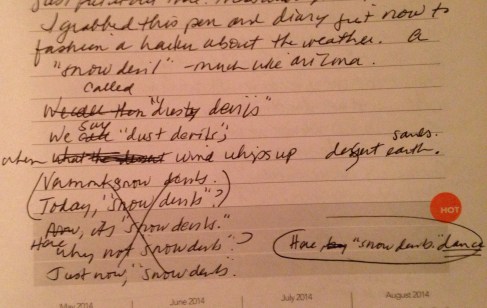 I grabbed this pen and diary just now to
fashion a haiku about the weather. A
"snow devil" - much like arizona.
called
We call them "dusty devils"
say
We call "dust devils",
when what the desert wind whips up desert earth.
sands.
(Vermont snow devils.
Today, "snow devils"?)
Now, it's "snow devils."
Here
Why not snow devils"?
Here, "snow devils" dance
Just now, "snow devils.
HOT
May 2014
June 2014
July 2014
August 2014